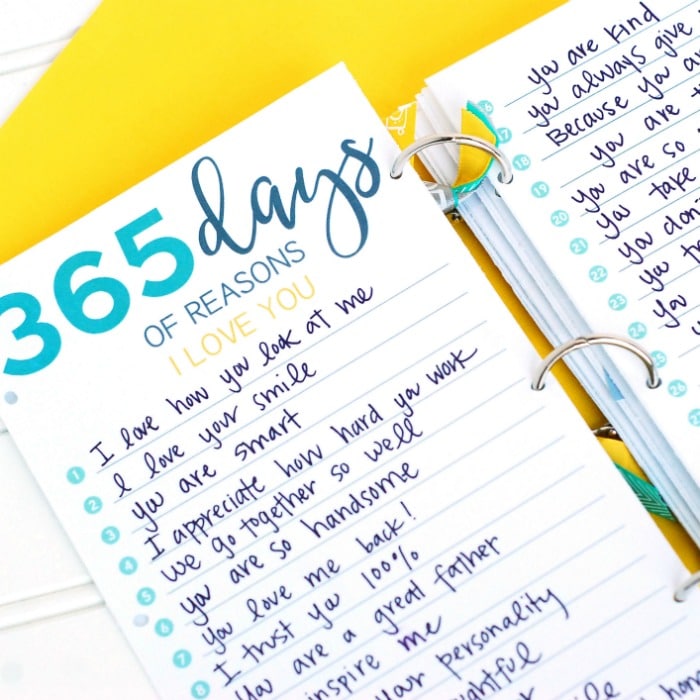 365 days
OF REASONS
I LOVE YOU
1 I love how you look at me
2 I love your smile
3 you are smart
4 I appreciate how hard you work
5 we go together so well
6 you are so handsome
7 you love me back!
8 I trust you 100%
you are a great father
inspire me
your personality
you are kind
you always give
17 Because you
18 you are
19 you are so
20 you take
21 you don't
22 you
23 you
24
25
26